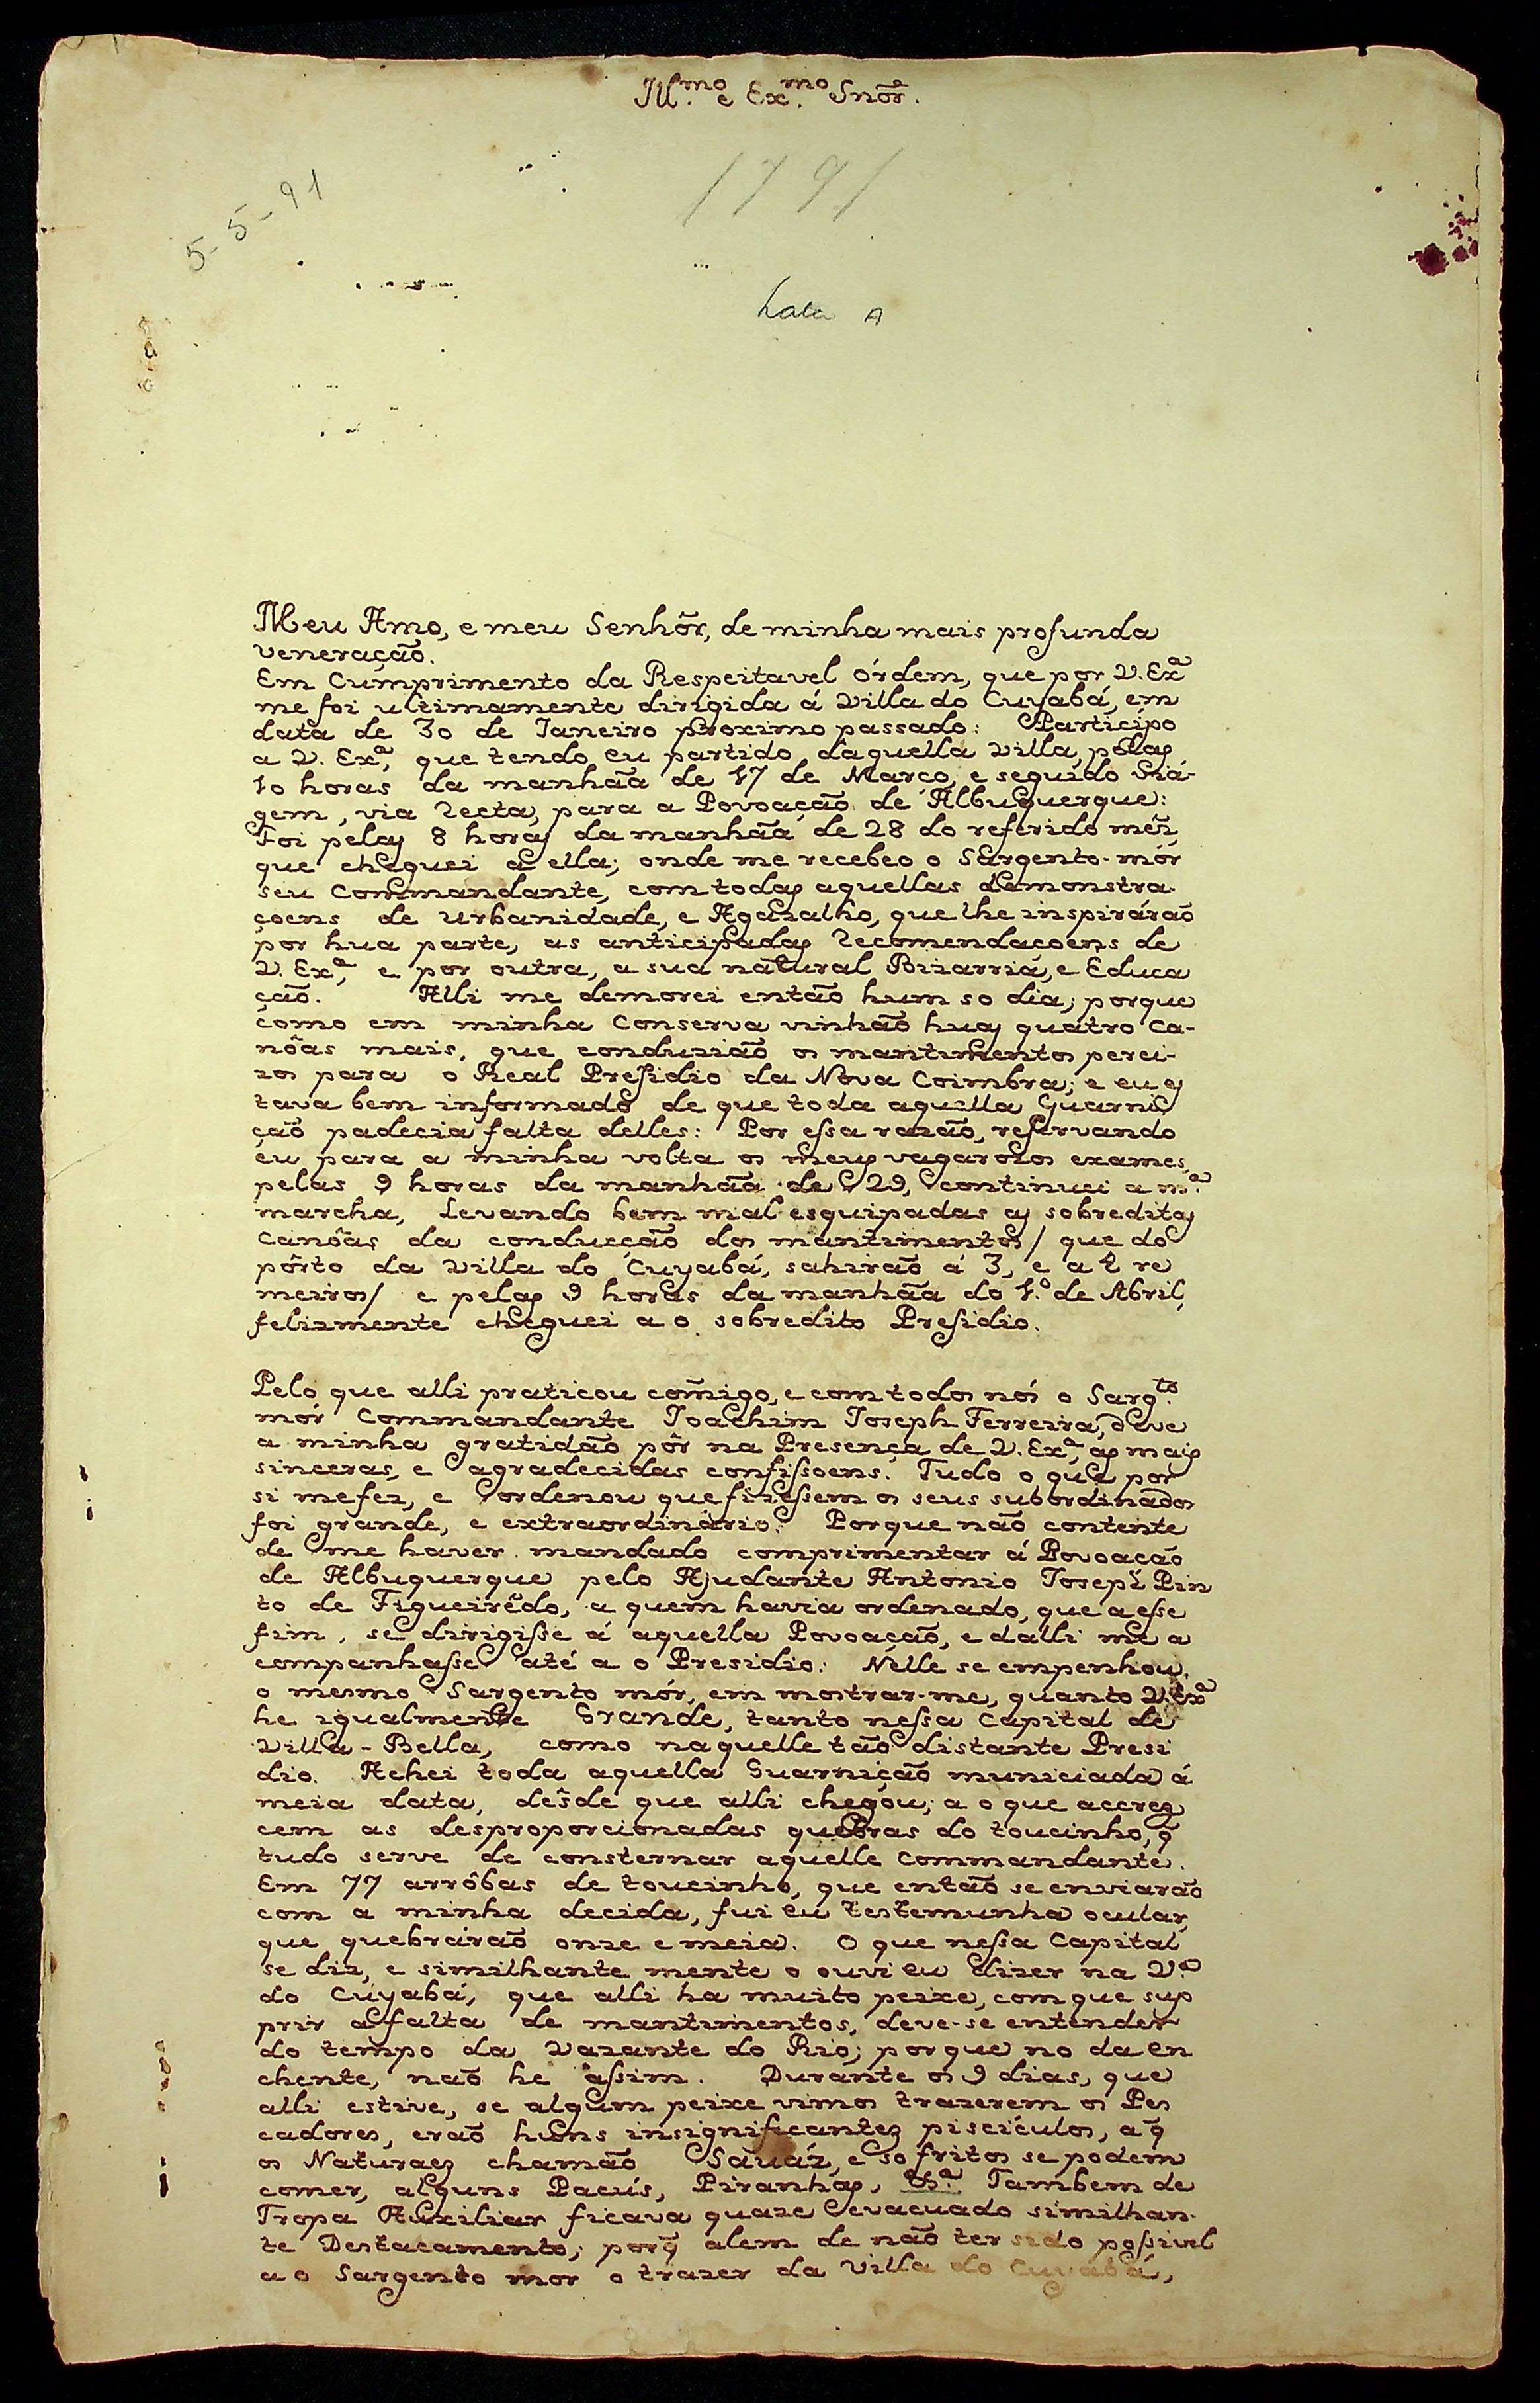 Ill.mo e Ex.mo Snõr.
1791
5-5-91
Lata A
Meu Amo, e meu Senhõr, de minha mais profunda
veneração.
Em Cumprimento da Respeitavel órdem, que por V. Exª
me foi ultimamente dirigida á Villa do Cuyabá, em
data de 30 de Janeiro proximo passado: Participo
a V. Exª, que tendo eu partido daquella Villa, pelas
10 horas da manhãa de 17 de Março, e seguido viá-
gem, via recta, para a Povoação de Albuquerque:
Foi pelas 8 horas da manhãa de 28 do referido mêz,
que cheguei a ella; onde me recebeo o Sargento-mór
seu Commandante, com todas aquellas demonstra-
çoens de Urbanidade, e Agazalho, que lhe inspirárão
por hua parte, as anticipadas recomendaçoens de
V. Exª, e por outra, a sua natural Bizarria, e Educa
ção. Alli me demorei então hum so dia; porque
como em minha Conserva vinhão huas quatro Ca-
nôas mais, que conduzião os mantimentos percí-
zos para o Real Presidio da Nova Coimbra; e eu es
tava bem informado de que toda aquella Guarni
ção padecia falta delles: Por essa razão, reservando
eu para a minha volta os meus vagarozos exames,
pelas 9 horas da manhãa de 29, continuei a m.ª
marcha, levando bem mal esquipadas as sobreditas
canôas da conducção dos mantimentos / que do
pôrto da Villa do Cuyabá, sahirão á 3, e a 2 re
meiros / e pelas 9 horas da manhãa do 1.º de Abril,
felizmente cheguei a o sobredito Presidio.
Pelo que alli praticou cõmigo, e com todos nós o Sarg.to
mór Commandante Joachim Joseph Ferreira, deve
a minha gratidão pôr na Presença de V. Exª, as mais
sinceras, e agradecidas confissoens. Tudo o que por
si me fez, e ordenou que fizessem os seus subordinados
foi grande, e extraordinário. Porque não contente
de me haver mandado comprimentar á Povoação
de Albuquerque pelo Ajudante Antonio Joseph Pin
to de Figueirêdo, a quem havia ordenado, que a esse
fim, se dirigisse á aquella Povoação, e dalli me a
companhasse até a o Presidio: Nelle se empenhou
o mesmo Sargento mór, em mostrar-me, quanto V. Exª
he igualmente Grande, tanto nessa Capital de
Villa-Bella, como naquelle tão distante Presi
dio. Achei toda aquella Guarnição municiada á
meia data, desde que alli chegou; a o que accres
cem as desproporcionadas quebras do toucinho, q̃
tudo serve de consternar aquelle Commandante.
Em 77 arrôbas de toucinho, que então se enviarão
com a minha decida, fui eu testemunha ocular,
que quebrárão onze e meia. O que nessa Capital
se diz, e similhante mente o ouvi eu dizer na V.ª
do Cuyabá, que alli ha muito peixe, com que sup
prir a falta de mantimentos, deve-se entender
do tempo da Vazante do Rio; porque no da en
chente, não he assim. Durante os 9 dias, que
alli estive, se algum peixe vimos trazerem os Pes
cadores, erão huns insignificantes piscículos, a q̃
os Naturaes chamão Sauáz, e so fritos se podem
comer, alguns Pacús, Piranhas, &ª. Tambem de
Tropa Auxiliar ficava quaze evacuado similhan-
te Destacamento; porq̃ alem de não ter sido possivel
a o Sargento mor o trazer da Villa do Cuyabá,